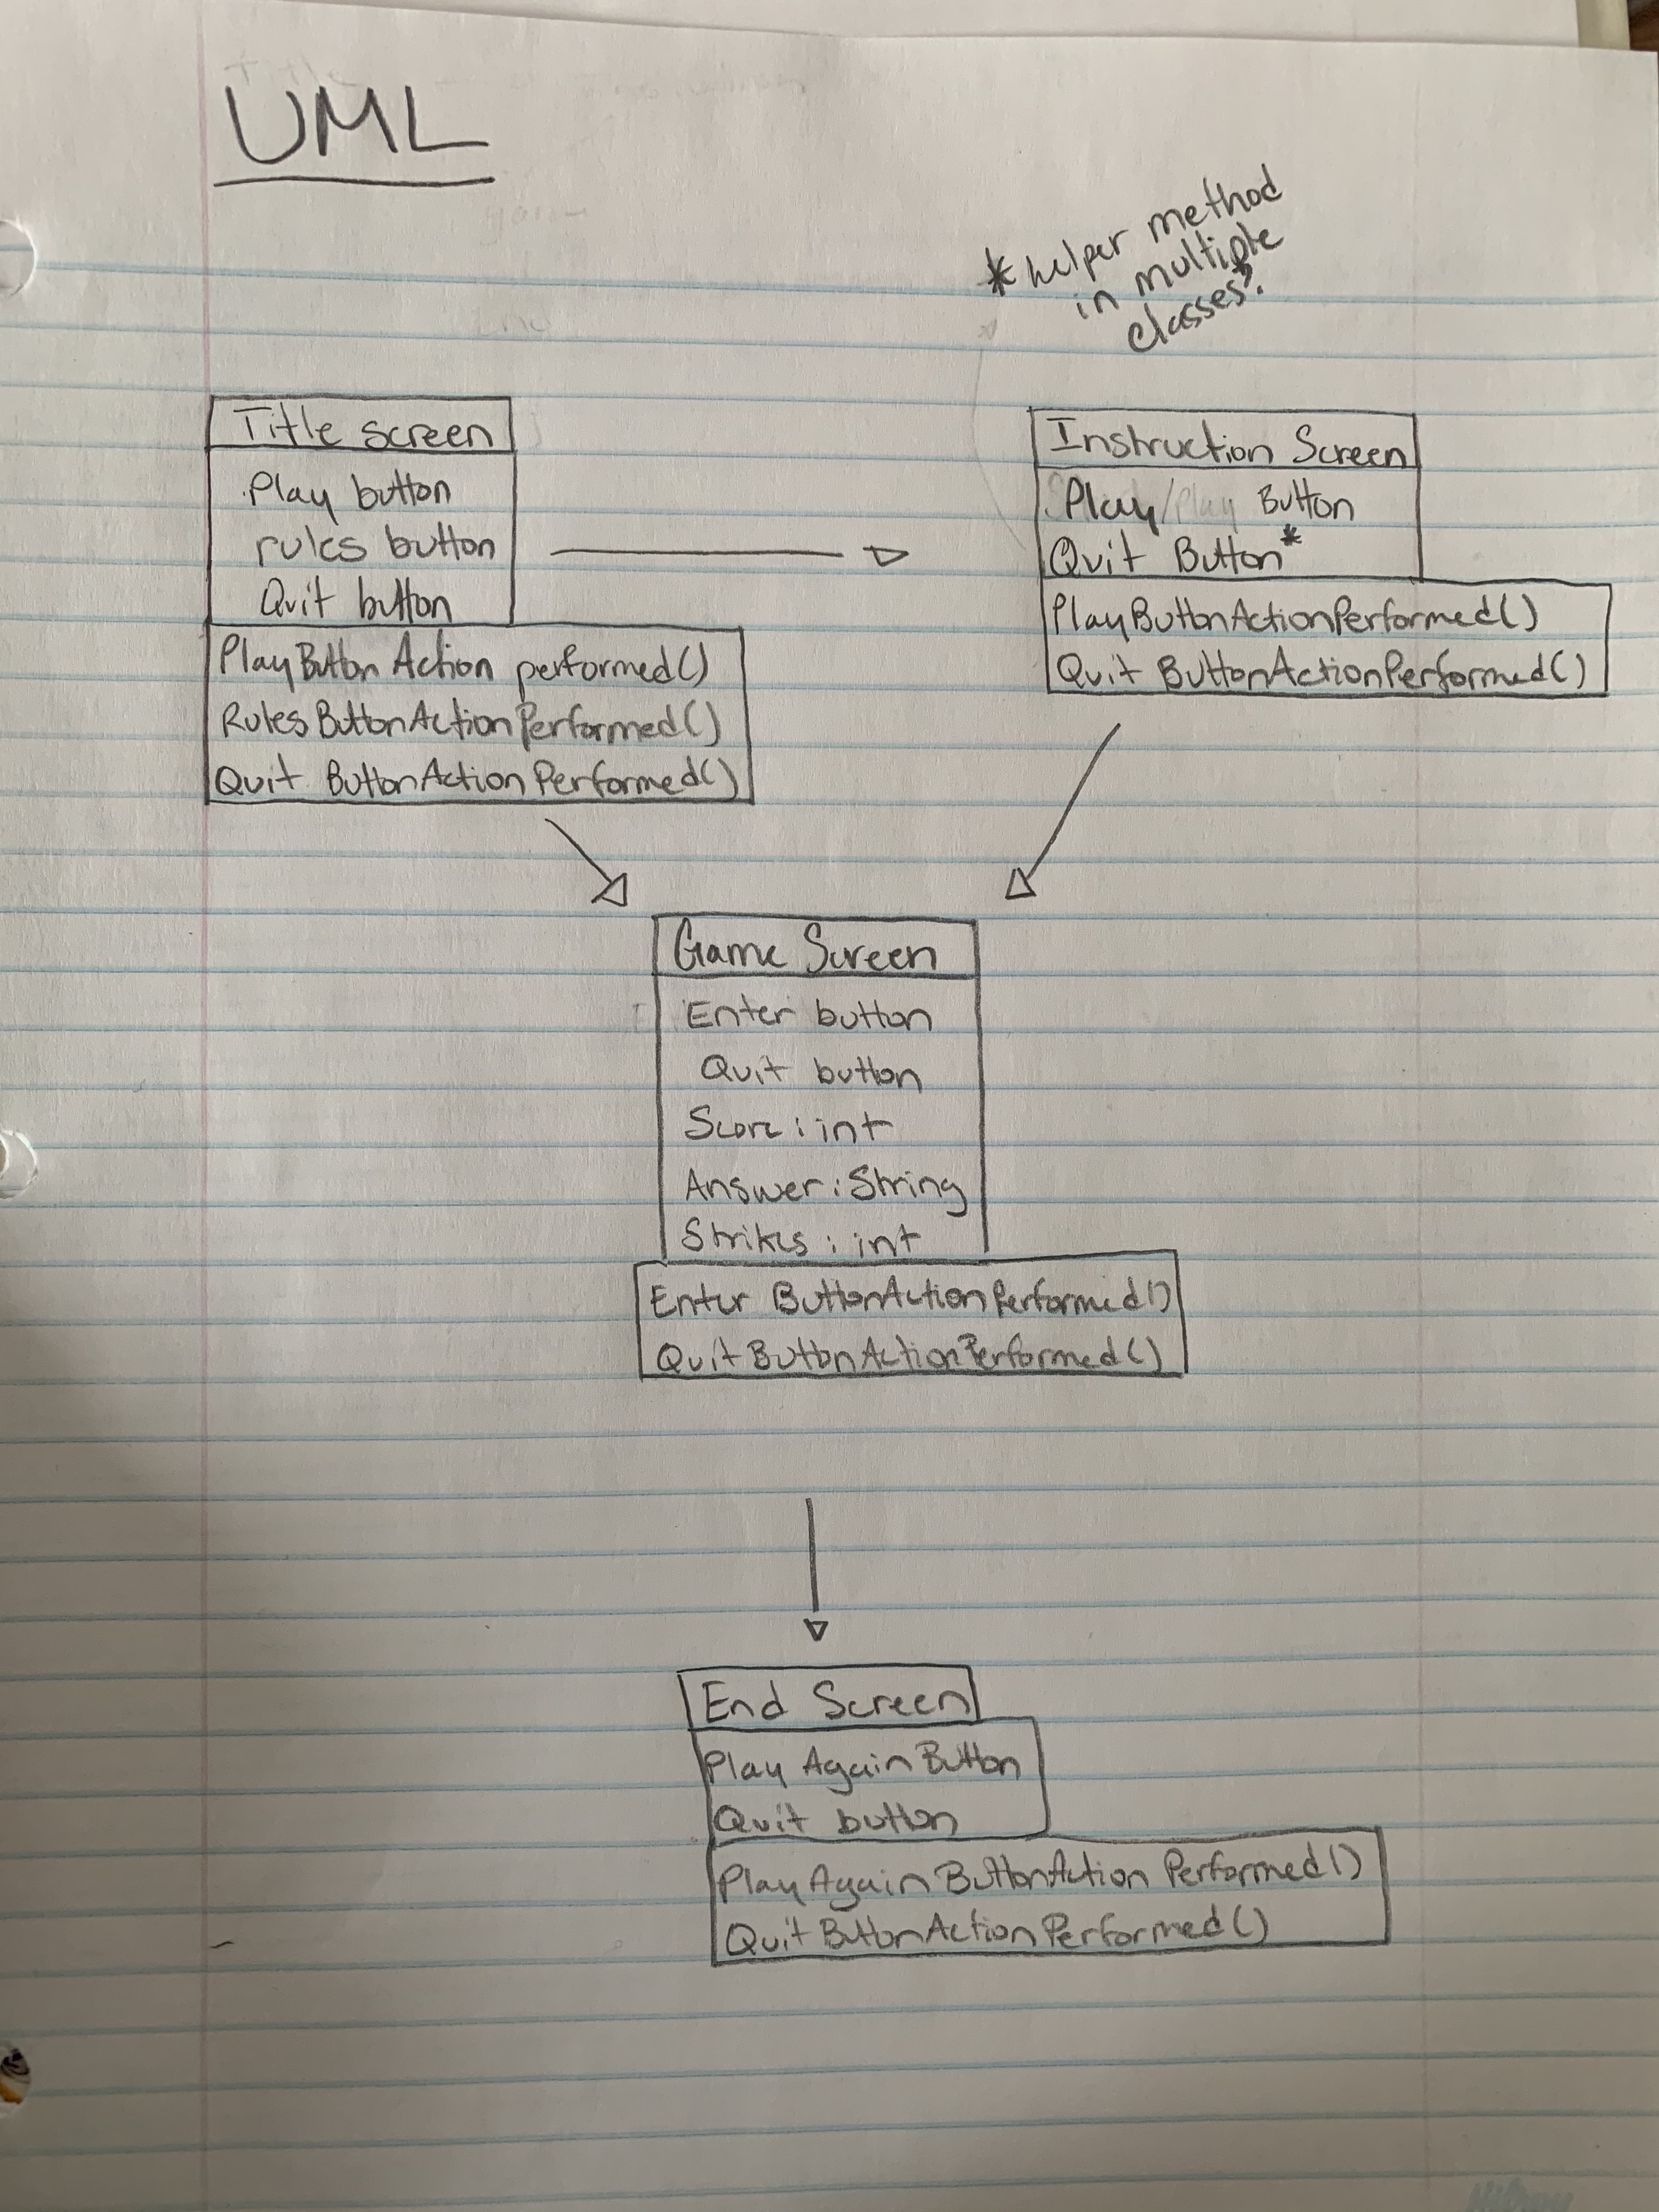 UML
* helper method
in multiple
classes?
Title screen
Play button
rules button
Quit button
PlayButton Action performed()
RulesButtonActionPerformed()
Quit ButtonActionPerformed()
Instruction Screen
Play/Play Button
Quit Button*
PlayButtonActionPerformed()
Quit ButtonActionPerformed()
Game Screen
Enter button
Quit button
Score: int
Answer: String
Strikes: int
Enter ButtonActionPerformed()
QuitButtonActionPerformed()
End Screen
Play Again Button
Quit button
PlayAgainButtonAction Performed()
QuitButtonActionPerformed()